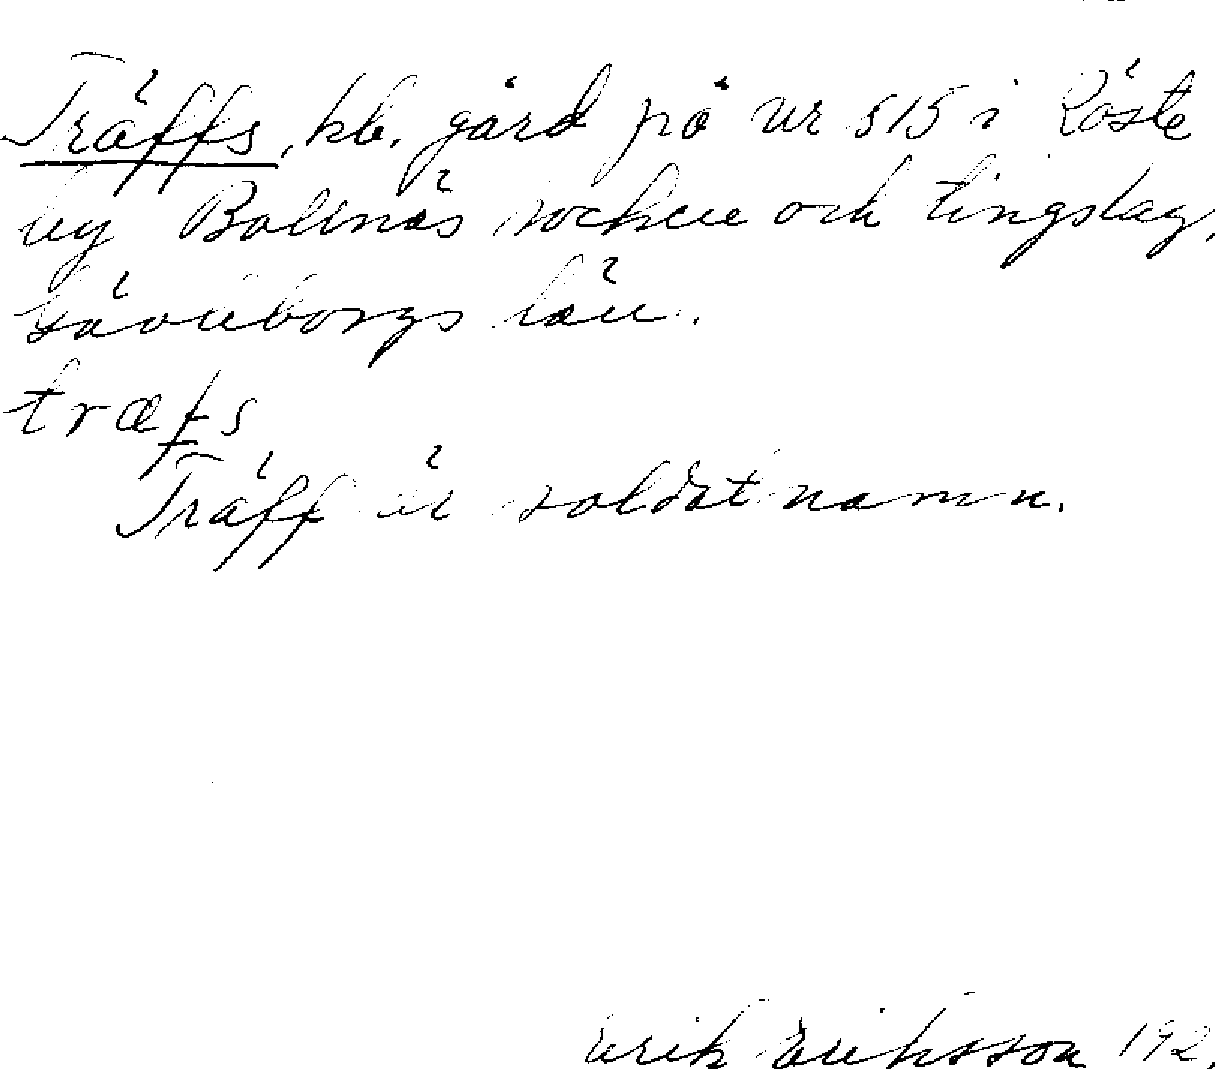 Träffs, kb. gård på nr 515 i Röste
by Bollnäs socken och tingslag,
Gävleborgs län.
træfs
Träff är soldatnamn.
Erik Eriksson 192.